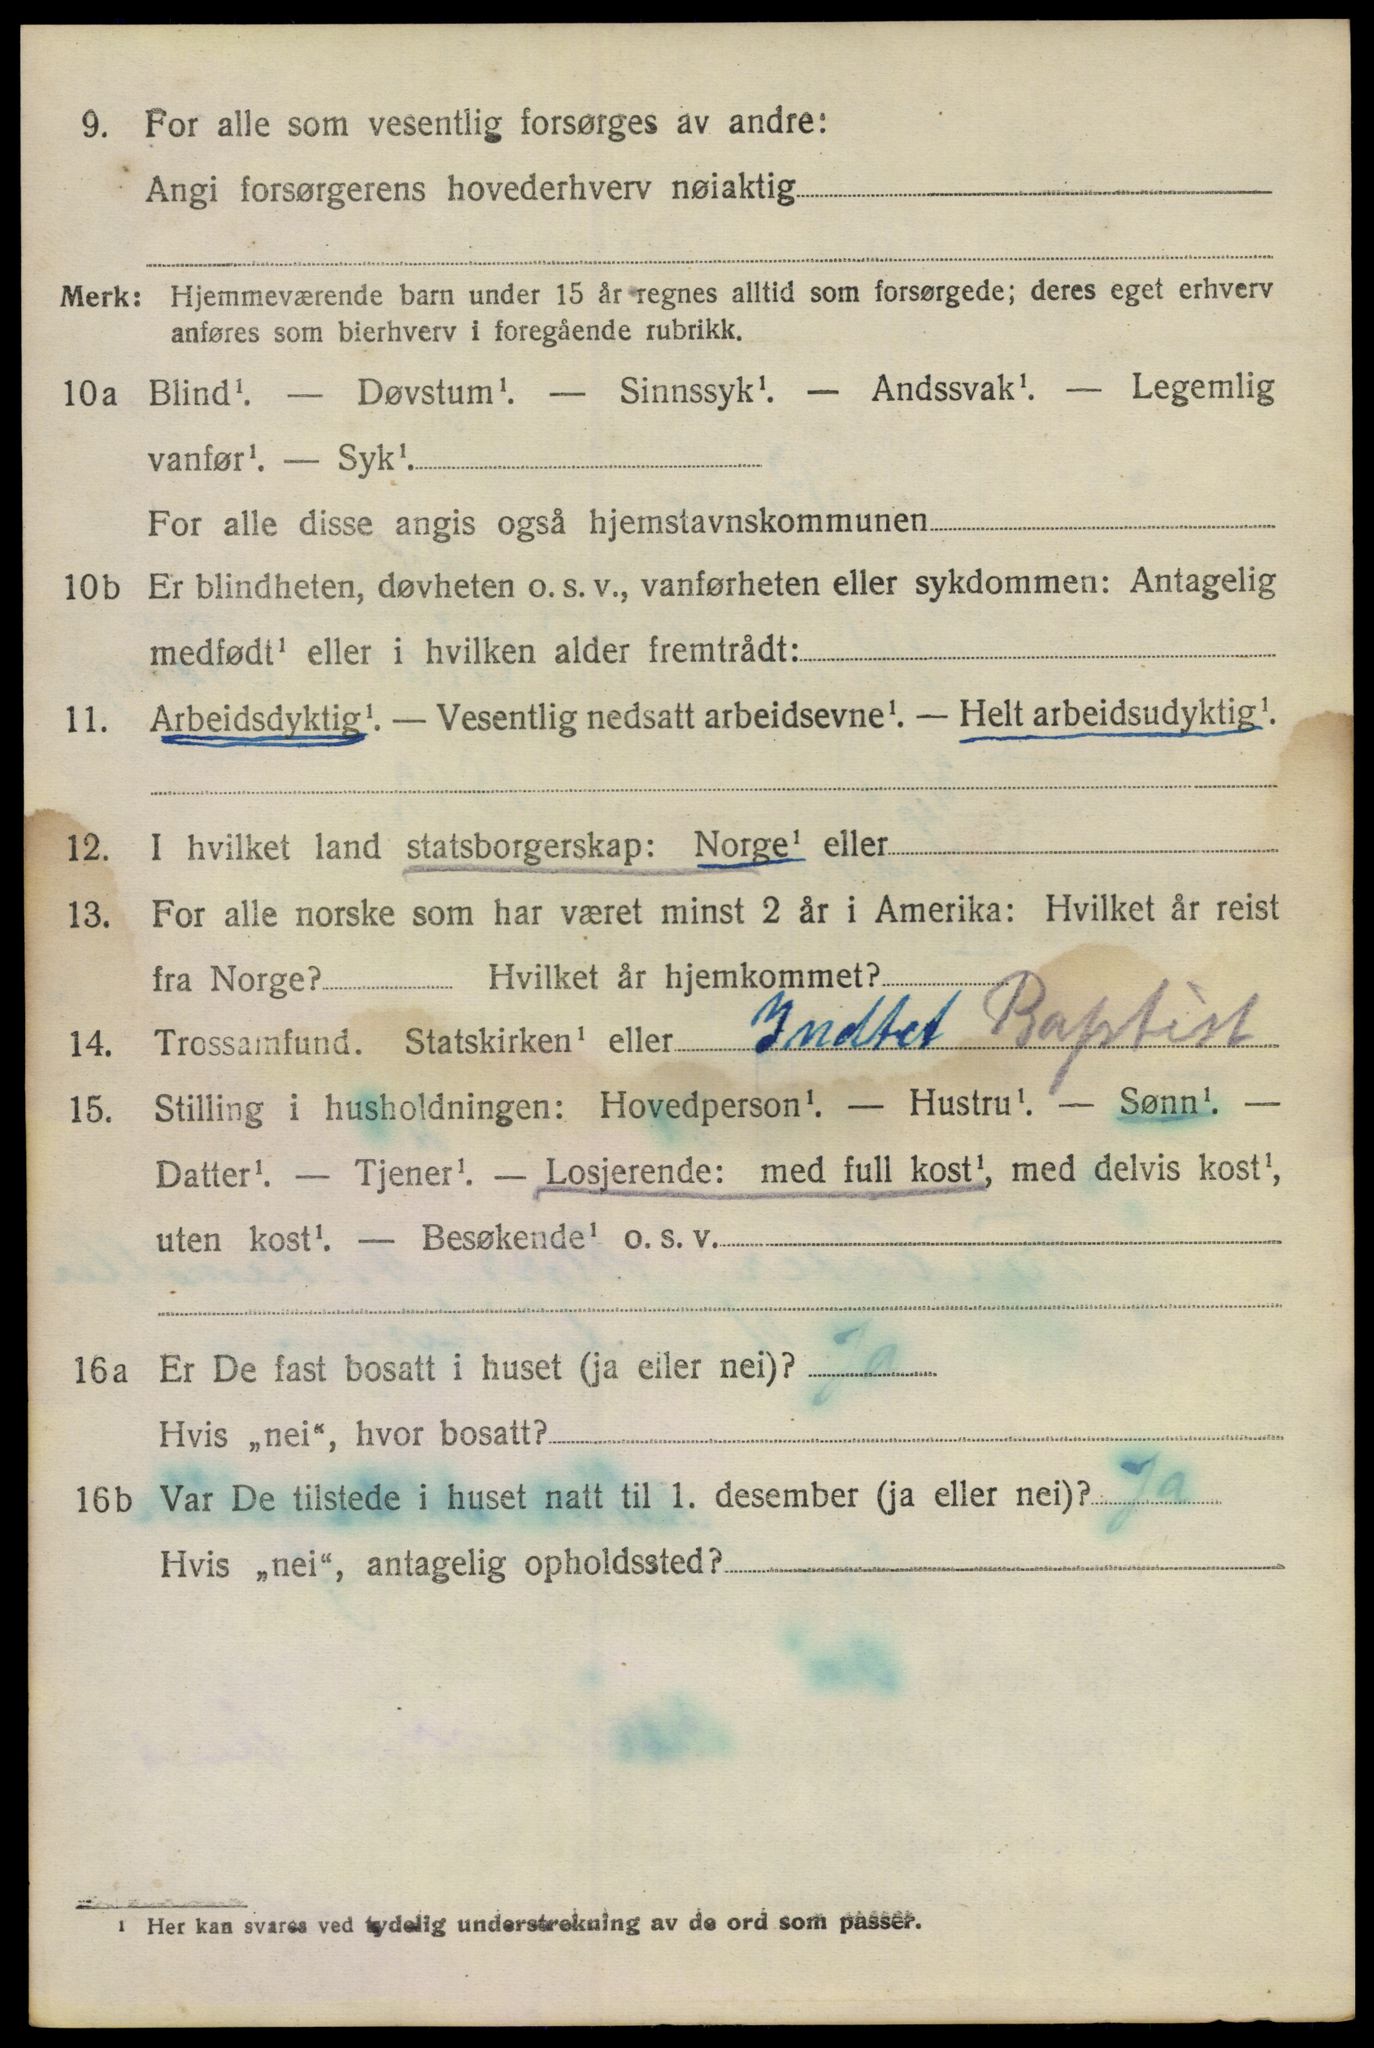 9. For alle som vesentlig forsørges av andre:
Angi forsørgerens hovederhverv nøiaktig
Merk: Hjemmeværende barn under 15 år regnes alltid som forsørgede; deres eget erhverv
anføres som bierhverv i foregående rubrikk.
10a Blind¹. — Døvstum¹. — Sinnssyk¹. — Andssvak¹. — Legemlig
vanfør¹. — Syk¹.
For alle disse angis også hjemstavnskommunen
10b Er blindheten, døvheten o. s. v., vanførheten eller sykdommen: Antagelig
medfødt¹ eller i hvilken alder fremtrådt:
11. Arbeidsdyktig¹. — Vesentlig nedsatt arbeidsevne¹. — Helt arbeidsudyktig¹.
12. I hvilket land statsborgerskap: Norge¹ eller
13. For alle norske som har været minst 2 år i Amerika: Hvilket år reist
fra Norge? Hvilket år hjemkommet?
14. Trossamfund. Statskirken¹ eller Indtet Baptist
15. Stilling i husholdningen: Hovedperson¹. — Hustru¹. — Sønn¹. —
Datter¹. — Tjener¹. — Losjerende: med full kost¹, med delvis kost¹,
uten kost¹. — Besøkende¹ o. s. v.
16a Er De fast bosatt i huset (ja eller nei)? Ja
Hvis „nei“, hvor bosatt?
16b Var De tilstede i huset natt til 1. desember (ja eller nei)? Ja
Hvis „nei“, antagelig opholdssted?
¹ Her kan svares ved tydelig understrekning av de ord som passer.